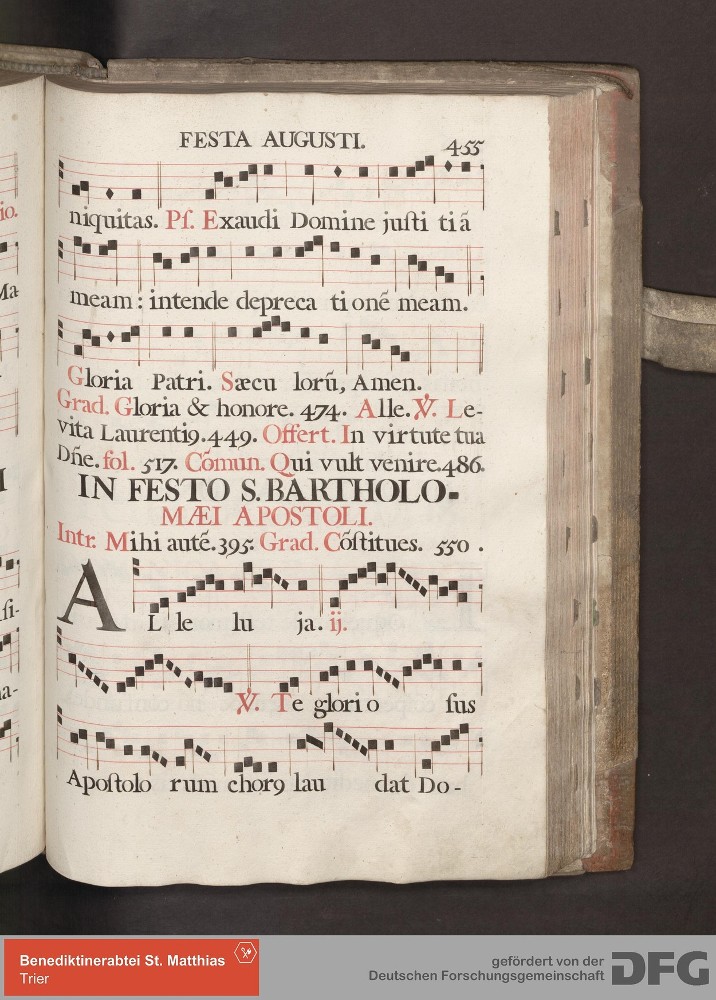 FESTA AUGUSTI. 455
niquitas. Pſ. Exaudi Domine juſti tiã
meam : intende depreca tionẽ meam.
Gloria Patri. Sæcu lorũ, Amen.
Grad. Gloria & honore. 474. Alle. ℣. Le-
vita Laurentiꝰ. 449. Offert. In virtute tua
Dñe. fol. 517. Cõmun. Qui vult venire. 486.
IN FESTO S. BARTHOLO-
MÆI APOSTOLI.
Intr. Mihi autẽ. 395. Grad. Cõſtitues. 550.
ALle lu ja. ij.
℣. Te glorio ſus
Apoſtolo rum chorꝰ lau dat Do-
io.
Ma-
I
ſi-
na-
Benediktinerabtei St. Matthias
Trier
gefördert von der
Deutschen Forschungsgemeinschaft
DFG